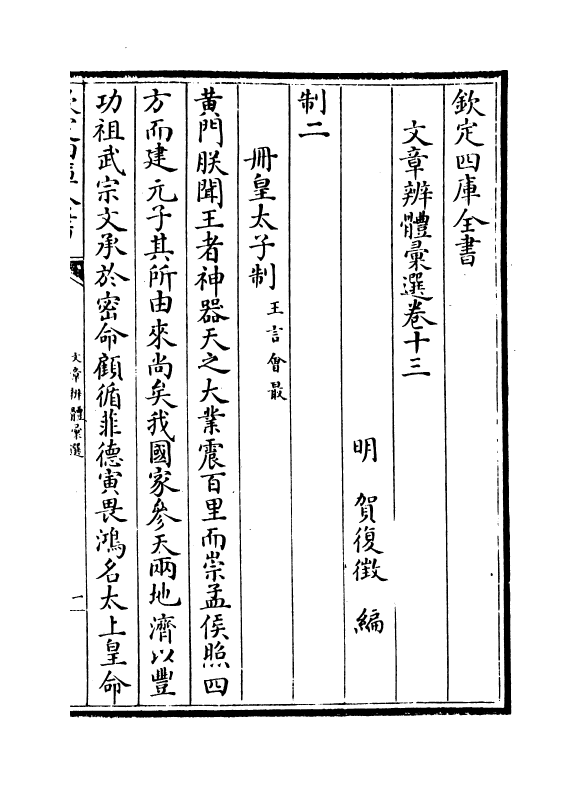 欽定四庫全書
文章辨體彙選卷十三
明 賀復徵 編
制二
冊皇太子制 王言會最
黃門朕聞王者神器天之大業震百里而崇孟侯照四
方而建元子其所由來尚矣我國家參天兩地濟以豐
功祖武宗文承於密命顧循菲德寅畏鴻名太上皇命
文章辨體彙選
一